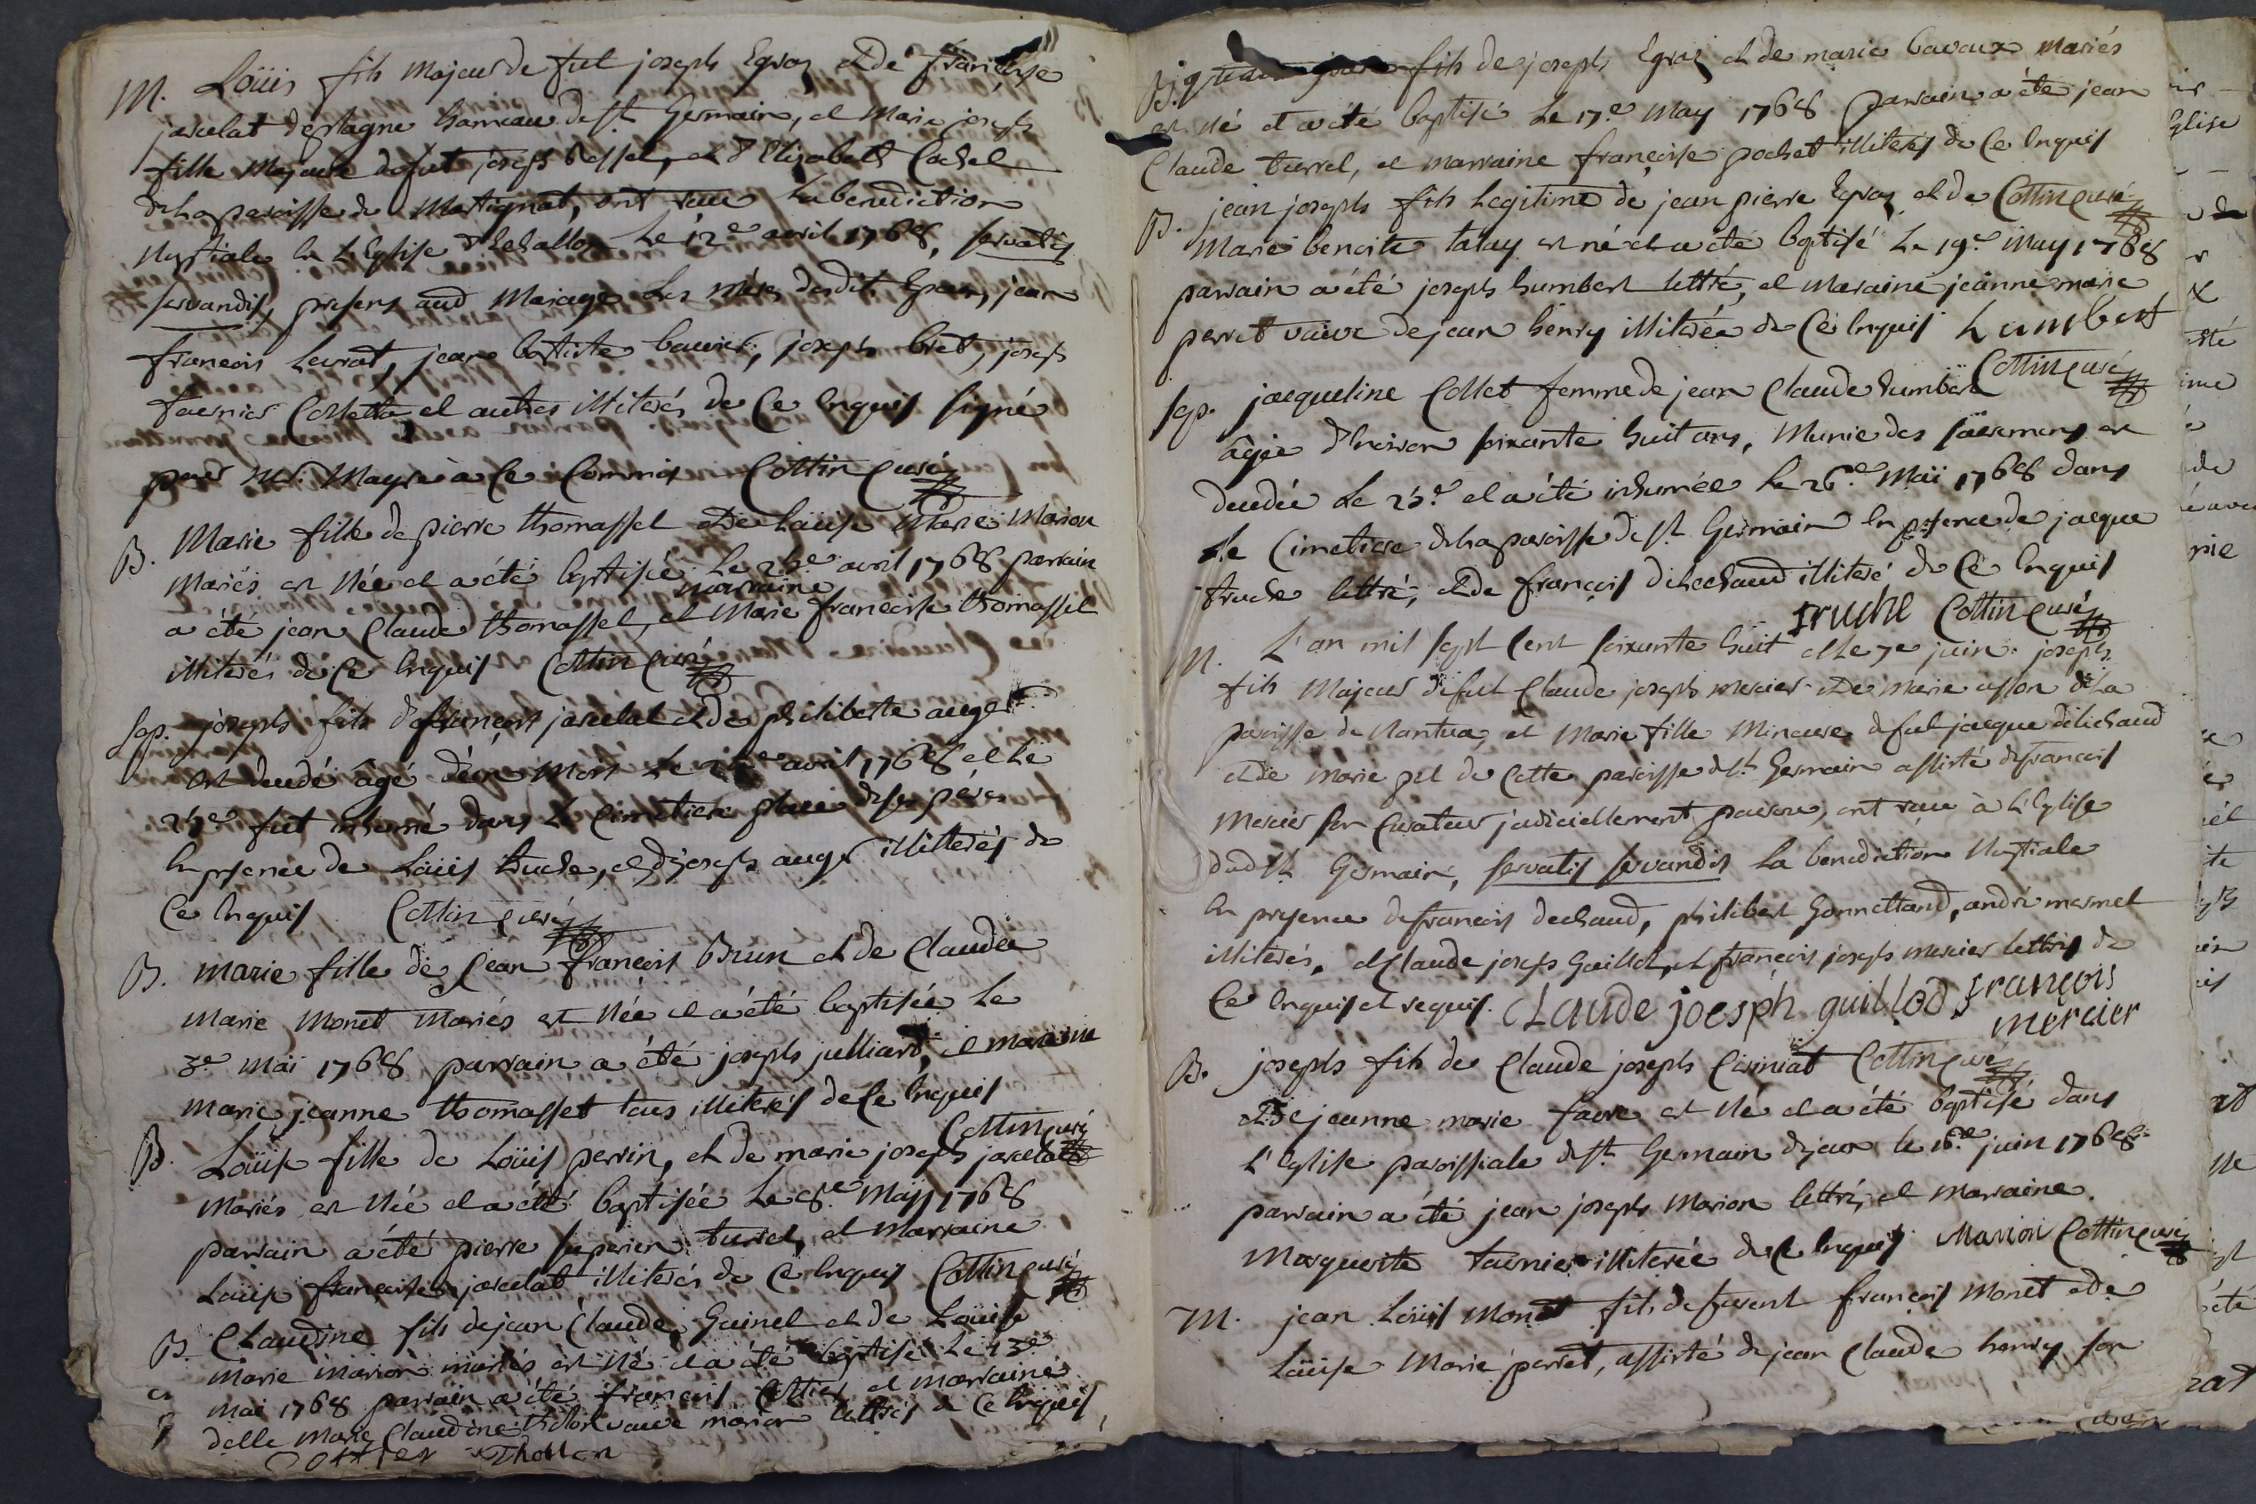 M. Loüis fils majeur de fut joseph Egraz et de françoise
jacelat d'eplagne hameau de st Germain, et Marie joseph
fille majeure de fut joseph bessel, et d'Elizabeth Cachel
de la paroisse de Martignat, ont reçu la benediction
nuptiale en l'Eglise d'Echallon le 12e avril 1768, servatis
servandis, presens aud mariage les mères desdits Epoux, jean
françois Levrat, jean baptiste bavoux, joseph bret, joseph
favnier Colletta et autres illiterés de ce enquis signé
par Mr. Mayre à ce commis Cottin curé
B. Marie fille de pierre thomasset et de Loüise Marie Marion
mariés est née et a été baptisée le 23e avril 1768 parrain
a été jean Claude thomasset, et marraine Marie françoise thomasset
illiterés de ce enquis Cottin curé
sep. joseph fils de françois jacelat et de philiberte auger
est decedé âgé d'un mois le avril 1768 et le
25e fut inhumé dans le cimetiere place de ses pères
en presence de Loüis truche, et de joseph auger illiterés de
ce enquis Cottin curé
B. marie fille de jean françois Brun et de Claudee
marie Monet mariés est née et a été baptisée le
3e maï 1768 parrain a été joseph julliard, et maraine
marie jeanne thomasset tous illiterés de ce enquis
Cottin curé
B. Loüise fille de Loüis perrin, et de marie joseph jacelat
mariés est née et a été baptisée le 8e May 1768
parrain a été pierre turrel, et marraine
Loüise françoise jacelat illiterés de ce enquis Cottin curé
B. Claudine fils de jean Claude Guinet et de Loüise
marie marion mariés est né et a été baptisé le 13e
mai 1768 parrain a été françois Cottier et marraine
delle marie Claudine thollon veuve marion lettrés de ce enquis
Cottier Thollon
B. fils de joseph Egraz et de marie bavoux mariés
est né et a été baptisé le 17e may 1768 parrain a été jean
Claude turrel, et marraine françoise pochet illiterés de ce enquis
Cottin curé
B. jean joseph fils legitime de jean pierre Egraz et de
Marie benoite tatay est né et a été baptisé le 19e may 1768
parrain a été joseph humbert lettré, et maraine jeanne marie
perret vaive de jean henry illiterée de ce enquis humbert
Cottin curé
sep. jacqueline Collet femme de jean Claude humbert
âgée d'environ soixante huit ans, munie des sacremens est
decedée le 25e et a été inhumée le 26e Maï 1768 dans
le Cimetiere de la paroisse de st Germain en presence de jacque
truche lettré, et de françois delechaud illiteré de ce enquis
truche Cottin curé
M. L'an mil sept cent soixante huit et le 7e juin joseph
fils majeur de fut Claude joseph mercier et de marie de la
paroisse de Nantua, et marie fille mineure de fut jacque delechaud
et de marie de cette paroisse de st Germain assisté de françois
mercier son curateur judiciellement, ont reçu à l'Eglise
dud st Germain, servatis servandis la benediction nuptiale
en presence de françois dechaud, philibert Gonnettand, andré mermet
illiterés, et Claude joseph Guillot, et françois joseph mercier lettrés de
ce enquis et requis. CLaude joesph guillod françois
mercier
Cottin curé
B. joseph fils de Claude joseph Carniat
et de jeanne marie favre est né et a été baptisé dans
l'Eglise paroissiale de st Germain de joux le 16e juin 1768
parrain a été jean joseph Marion lettré, et marraine
Marguerite tavnier illiterée de ce enquis Marion Cottin curé
M. jean Loüis Monet fils de fuent françois Monet et de
Loüise Marie perret, assisté de jean Claude henry son